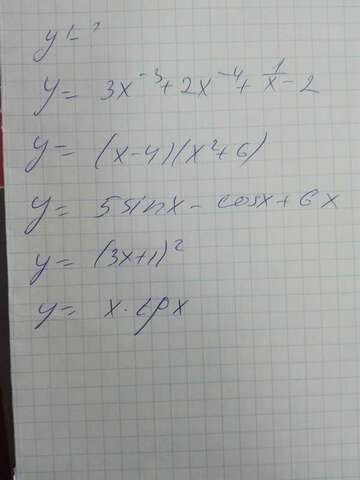 y'=?
y= 3x⁻³+2x⁻⁴+1/x-2
y= (x-4)(x²+6)
y= 5sinx-cosx+6x
y= (3x+1)²
y= x·tgx